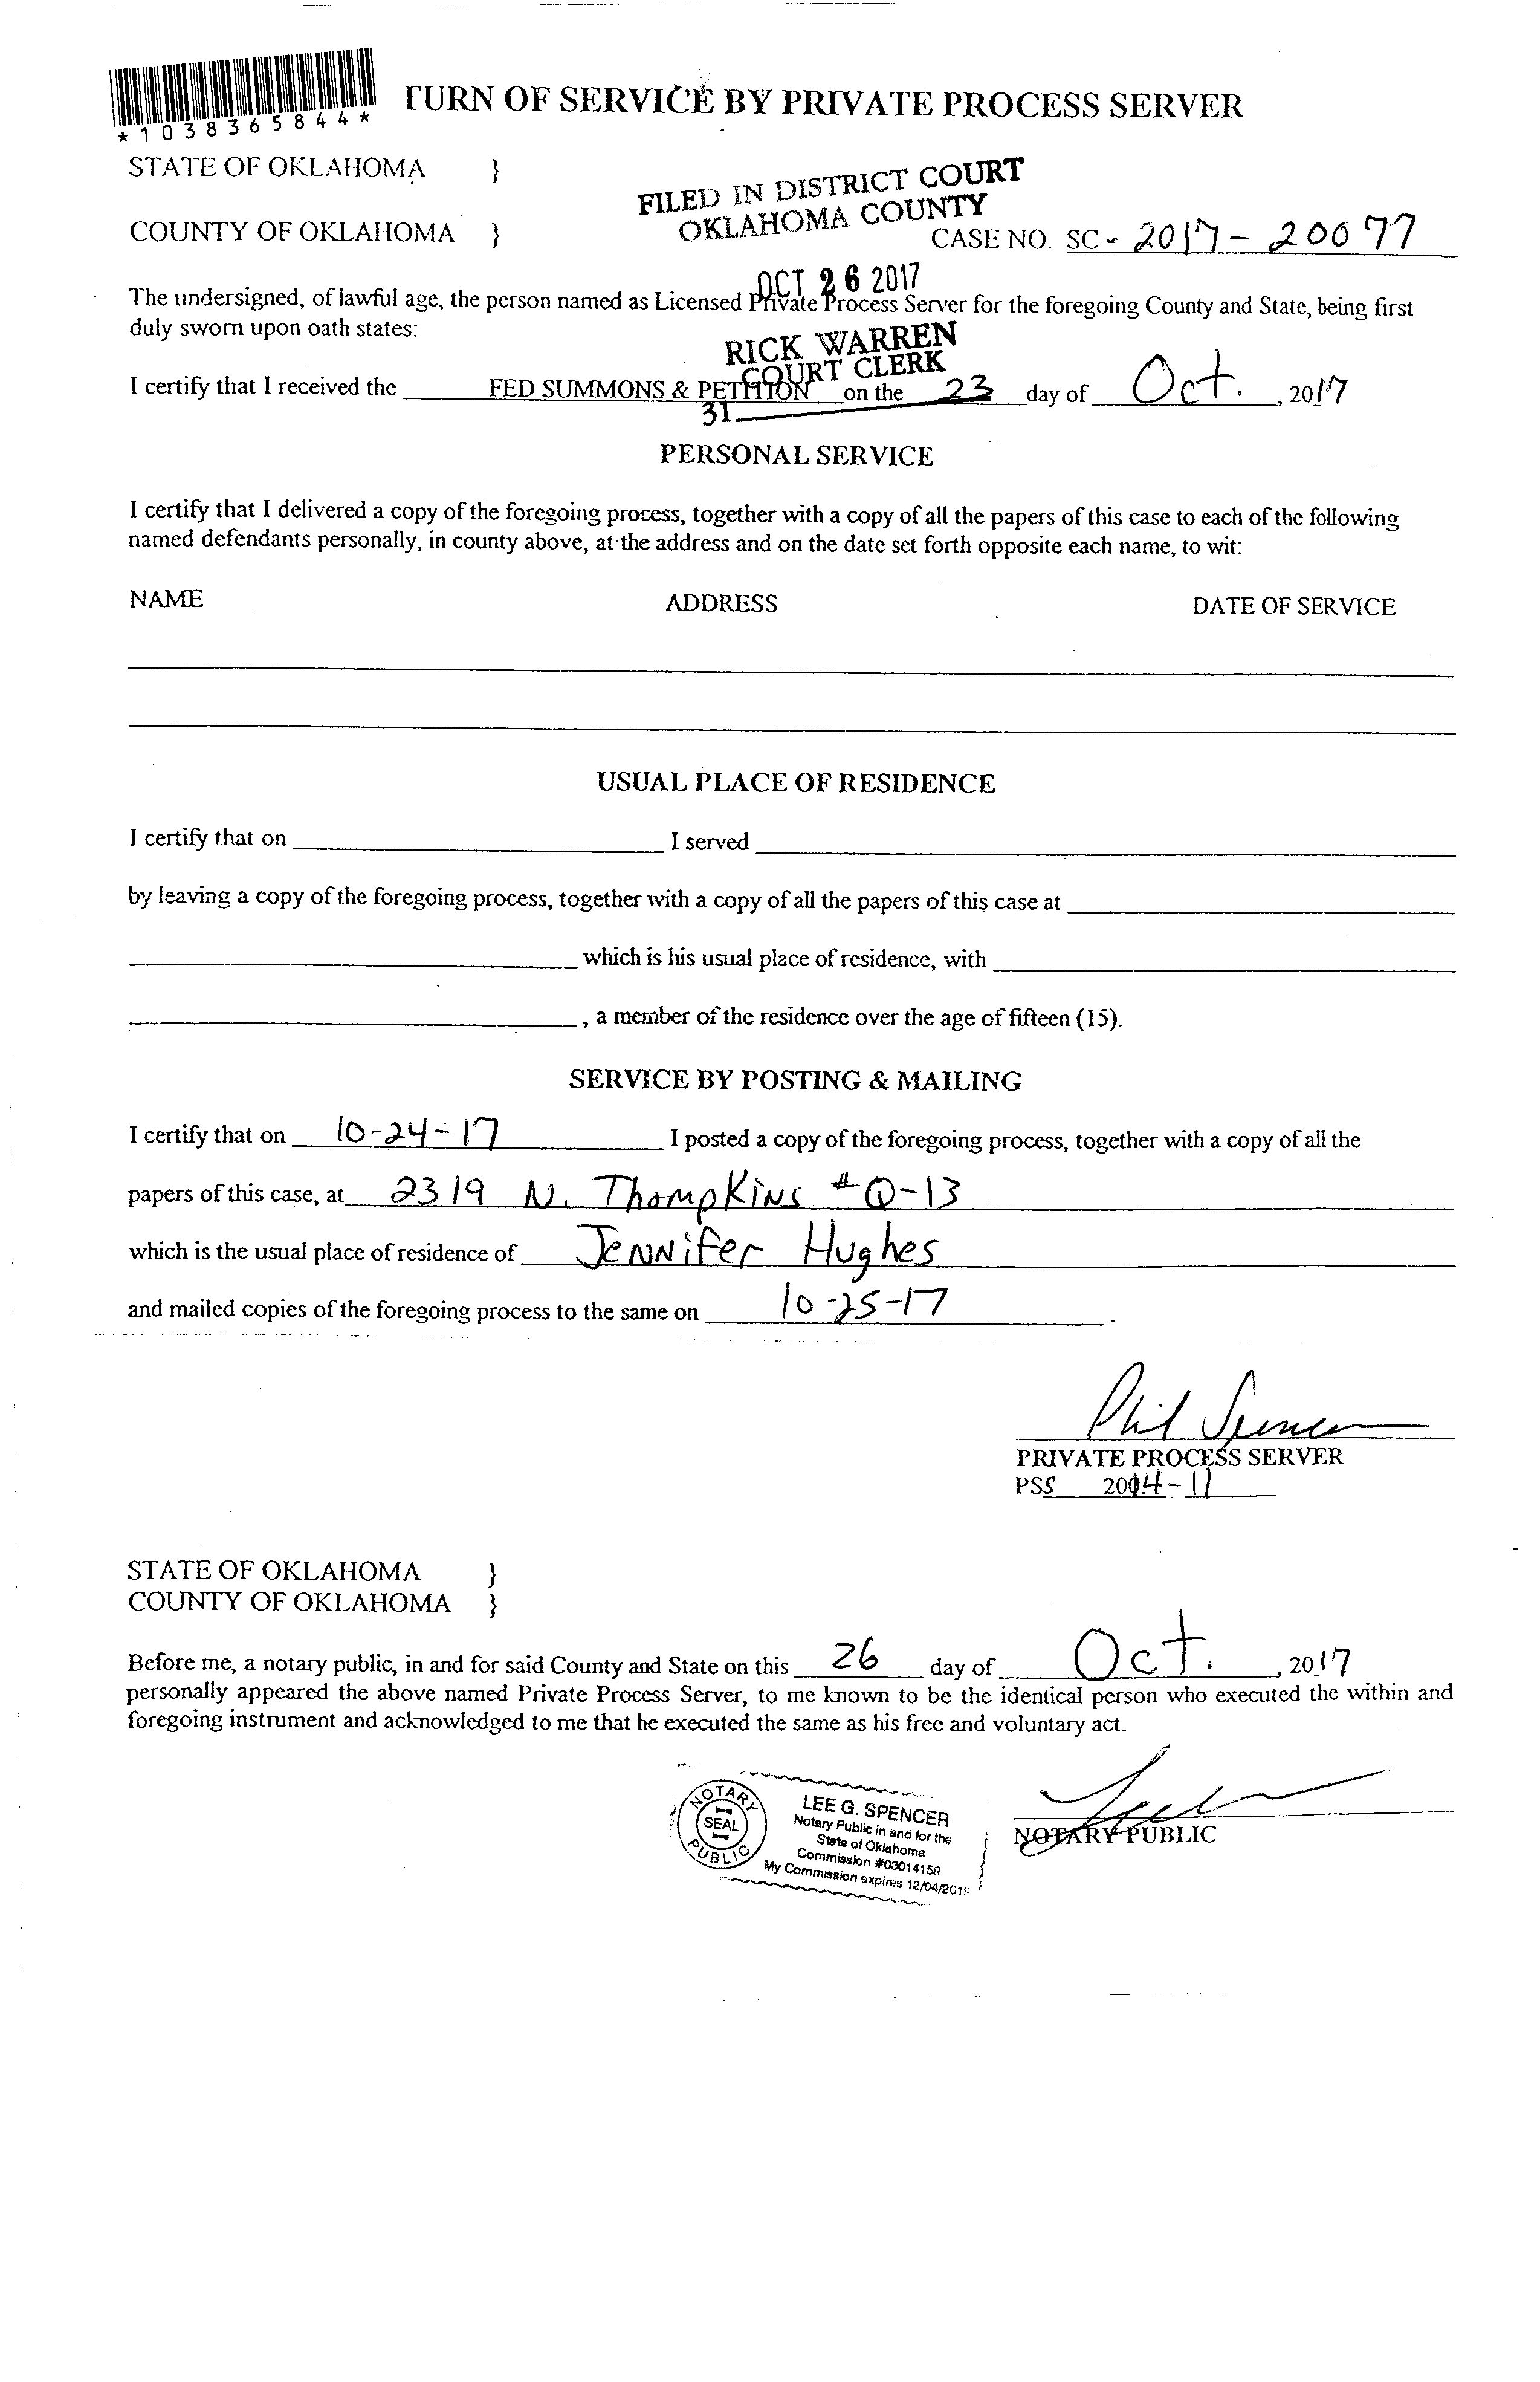 *1038365844*
TURN OF SERVICE BY PRIVATE PROCESS SERVER
STATE OF OKLAHOMA }
FILED IN DISTRICT COURT
OKLAHOMA COUNTY
COUNTY OF OKLAHOMA }
CASE NO. SC - 2017 - 20077
OCT 26 2017
The undersigned, of lawful age, the person named as Licensed Private Process Server for the foregoing County and State, being first
duly sworn upon oath states:
RICK WARREN
COURT CLERK
I certify that I received the FED SUMMONS & PETITION on the 23 day of Oct. , 2017
31
PERSONAL SERVICE
I certify that I delivered a copy of the foregoing process, together with a copy of all the papers of this case to each of the following
named defendants personally, in county above, at the address and on the date set forth opposite each name, to wit:
NAME ADDRESS DATE OF SERVICE
USUAL PLACE OF RESIDENCE
I certify that on I served
by leaving a copy of the foregoing process, together with a copy of all the papers of this case at
which is his usual place of residence, with
, a member of the residence over the age of fifteen (15).
SERVICE BY POSTING & MAILING
I certify that on 10-24-17 I posted a copy of the foregoing process, together with a copy of all the
papers of this case, at 2319 N. Thompkins #Q-13
which is the usual place of residence of Jennifer Hughes
and mailed copies of the foregoing process to the same on 10-25-17 .
Phil Spencer
PRIVATE PROCESS SERVER
PSS 2014-11
STATE OF OKLAHOMA }
COUNTY OF OKLAHOMA }
Before me, a notary public, in and for said County and State on this 26 day of Oct. , 2017
personally appeared the above named Private Process Server, to me known to be the identical person who executed the within and
foregoing instrument and acknowledged to me that he executed the same as his free and voluntary act.
NOTARY
SEAL
PUBLIC
LEE G. SPENCER
Notary Public in and for the
State of Oklahoma
Commission #03014159
My Commission expires 12/04/201
NOTARY PUBLIC